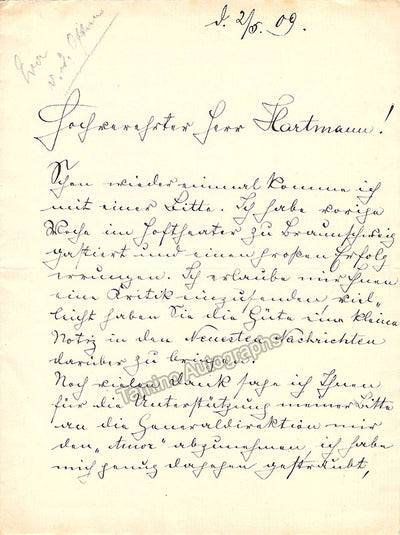 d. 2/5. 09.
Eva
v. d. Osten
Hochverehrter Herr Hartmann!
Schon wieder einmal komme ich
mit einer Bitte. Ich habe vorige
Woche im Hoftheater zu Braunschweig
gastiert und einen großen Erfolg
errungen. Ich erlaube mir Ihnen
eine Kritik einzusenden viel„
leicht haben Sie die Güte eine kleine
Notiz in den Neuesten Nachrichten
darüber zu bringen.
Noch vielen Dank sage ich Ihnen
für die Unterstützung meiner Bitte
an die Generaldirektion mir
den „Amor" abzunehmen, ich habe
mich genug dagegen gesträubt,
Tamino Autographs